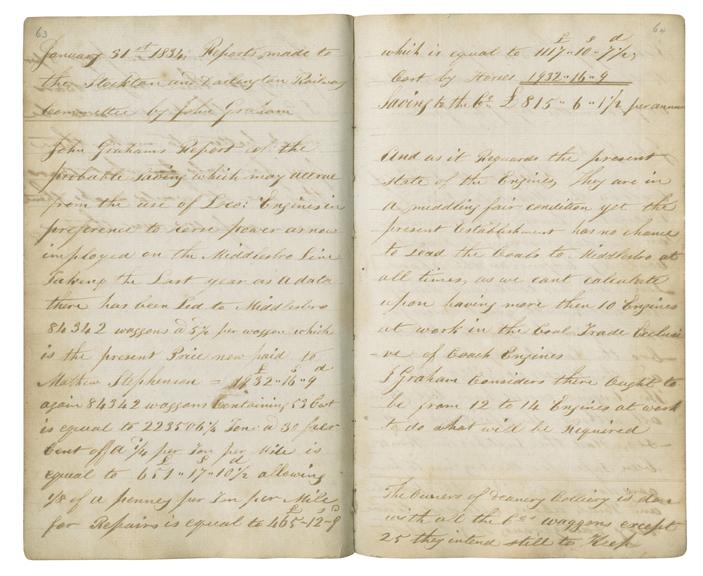 63
January 31st 1834, Reports made to
the Stockton and Darlington Railway
Committee by John Graham
John Grahams Report of the
probable saving which may accrue
from the use of Loco: Engines in
preference to horse power as now
imployed on the Middlesbro Line
Takeing the Last year as a data
there has been Led to Middlesbro
84342 waggons @ 5½ per waggon which
is the present Price now paid to
£ s d
Mathew Stephenson = 1932"16"9
again 84342 waggons Containing 53 Cwt
is equal to 223506¼ Ton: @ 30 per
Cent off @ ¼ per Ton per Mile is
£ s d
equal to 651"17"10½ allowing
⅛ of a penney per Ton per Mile
£ s d
for Repairs is equal to 465-12-9
64
£ s d
which is equal to 1117"10"7½,
Cost by Horses 1932"16"9
Saving to the Co. £815"6"1½ per annum
And as it Reguards the present
state of the Engines, They are in
a middling fair condition yet the
present Establishment has no chance
to Lead the Coals to Middlesbro at
all times, as we cant calculate
upon having more then 10 Engines
at work in the Coal Trade Exclusi
-ve of Coach Engines
J Graham Considers there Ought to
be from 12 to 14 Engines at work
to do what will be Required
The Owners of Deanery Colliery is don
with all the Cos waggons except
25 they intend still to Keep